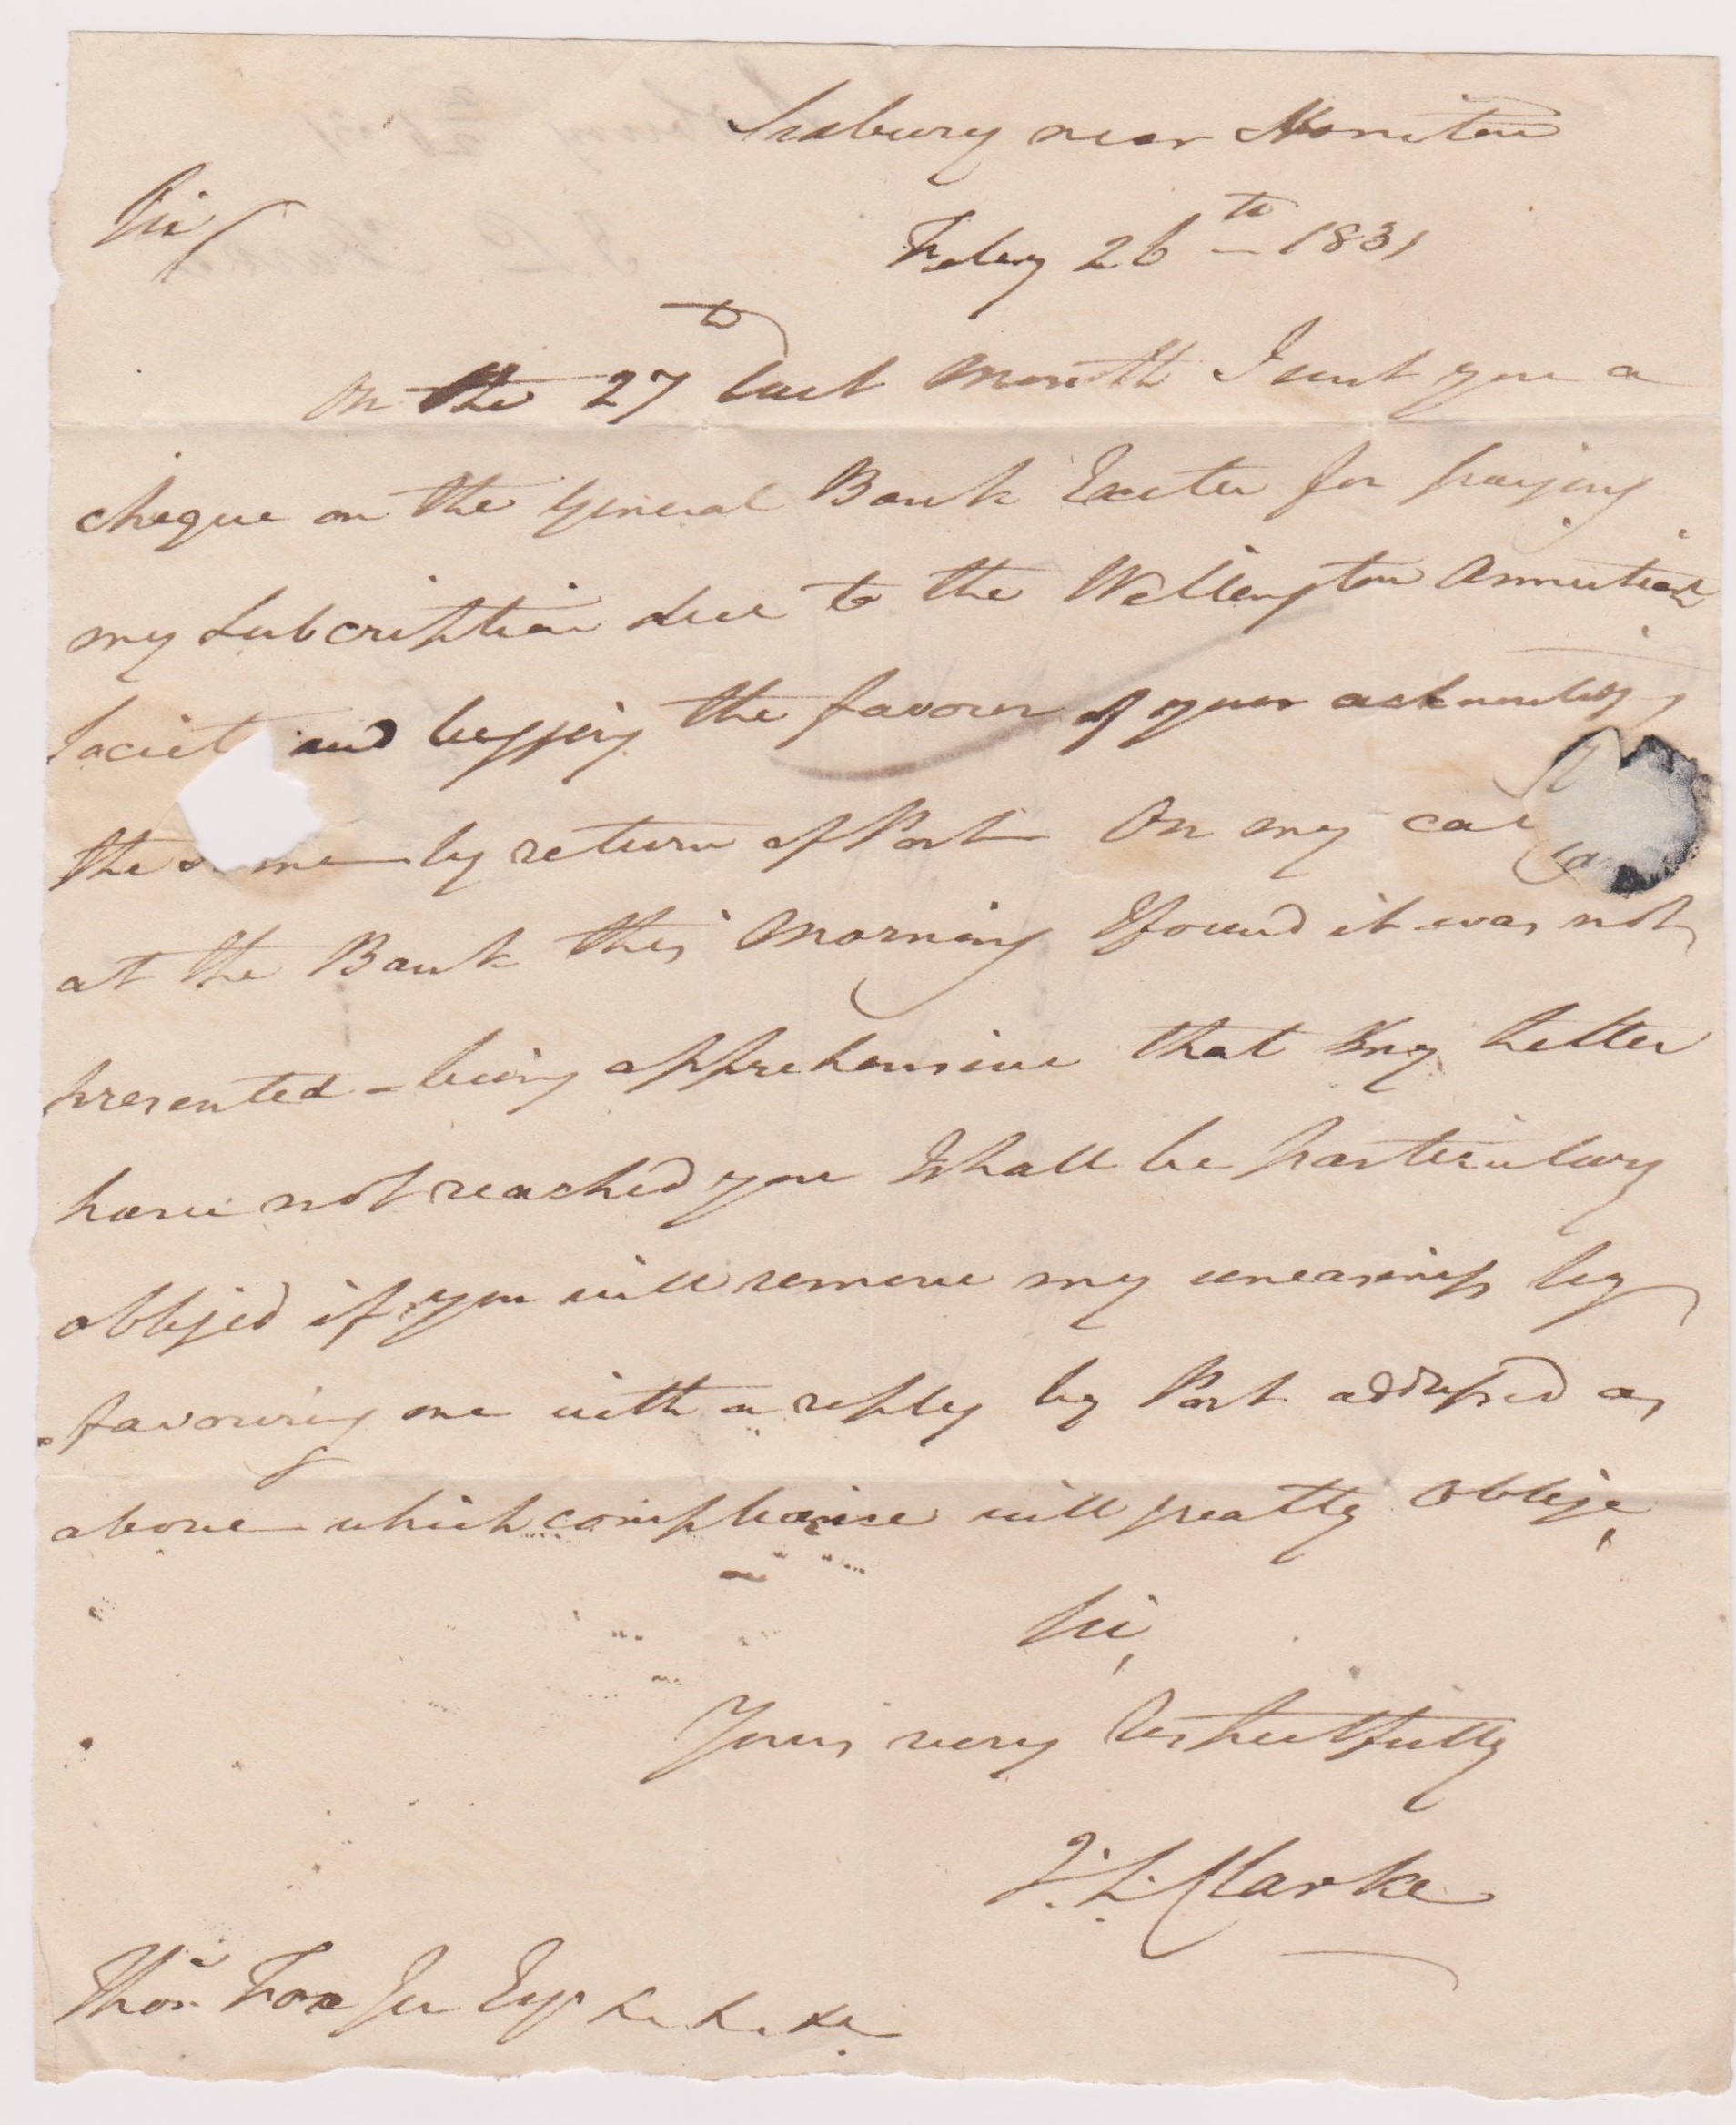 Sudbury near Honiton
Sir/
Feby 26th – 1831
On the 27th last month I sent you a
cheque on the General Bank Exeter for paying
my Subcription due to the Wellington Annuitant
Societ and begging the favour of your acknowledg
the same by return of Post On my cal
at the Bank this Morning I found it was not
presented – being apprehensive that my Letter
have not reached you I shall be particulary
obliged if you will remove my uneasiness by
favouring me with a reply by Post addressed as
above which complianse will greatly Oblige,
Sir,
Yours very Respectfully
J. L. Clarke
Thos. Fox Jr Esqr &. &. &c.